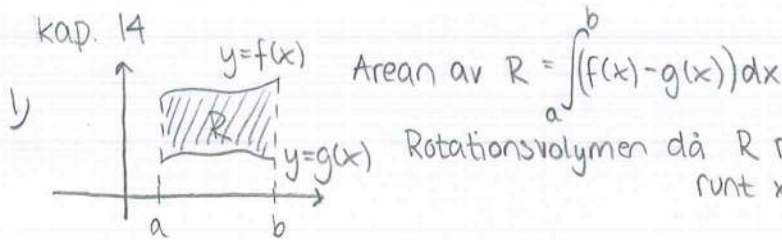 kap. 14
1)
y=f(x)
R
y=g(x)
a
b
Arean av R = ∫_a^b (f(x)-g(x))dx
Rotationsvolymen då R
runt x